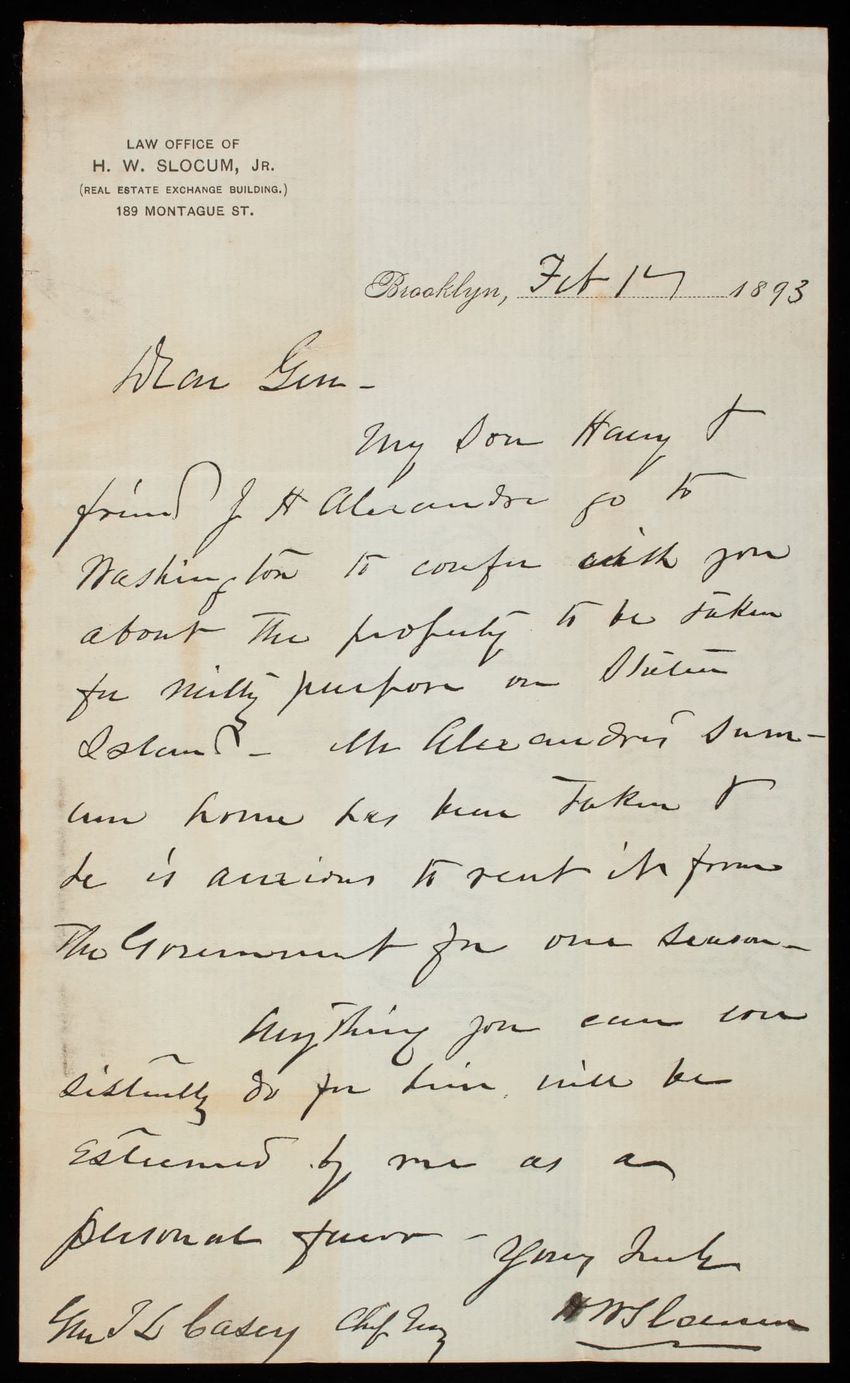 LAW OFFICE OF
H. W. SLOCUM, JR.
(REAL ESTATE EXCHANGE BUILDING.)
189 MONTAGUE ST.
Brooklyn, Feb 17 1893
Dear Gen -
My Son Harry &
friend J H Alexandre go to
Washington to confer with you
about the property to be taken
for milty purpose on Staten
Island - Mr Alexandre's Sum-
mer home has been taken &
he is anxious to rent it from
the Government for one season -
Anything you can con
sistently do for him will be
esteemed by me as a
personal favor -
Yours Truly
H W Slocum
Gen T L Casey Chf Eng